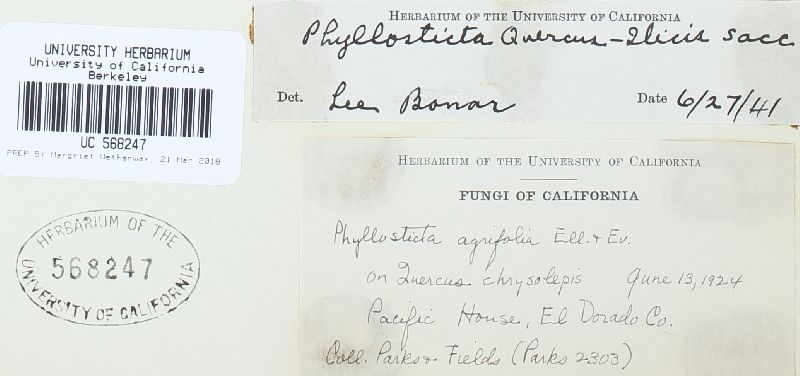 UNIVERSITY HERBARIUM
University of California
Berkeley
UC 568247
PREP BY Margriet Wetherwax, 21 Mar 2018
HERBARIUM OF THE
568247
UNIVERSITY OF CALIFORNIA
HERBARIUM OF THE UNIVERSITY OF CALIFORNIA
Phyllosticta Quercus-Ilicis Sacc
Det. Lee Bonar Date 6/27/41
HERBARIUM OF THE UNIVERSITY OF CALIFORNIA
FUNGI OF CALIFORNIA
Phyllosticta agrifolia Ell. & Ev.
on Quercus chrysolepis June 13, 1924
Pacific House, El Dorado Co.
Coll. Parks & Fields (Parks 2303)